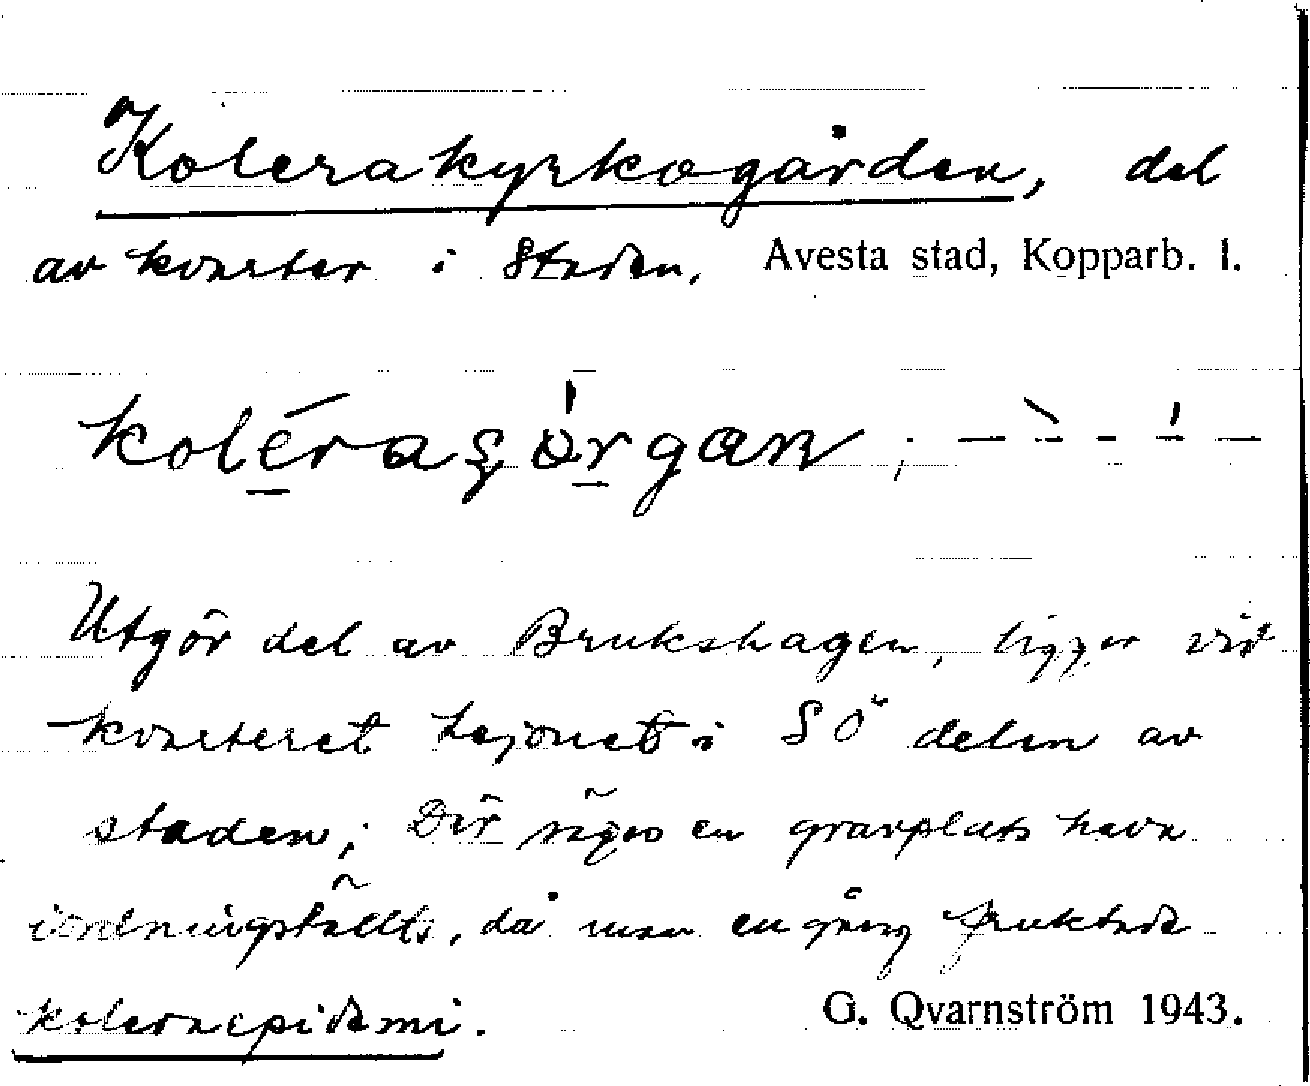 Kolerakyrkogården, del
av kvarter i Staden. Avesta stad, Kopparb. l.
koléraşórgan ; – ` - – ' –
Utgör del av Brukshagen, ligger vid
kvarteret Lejonet i SÖ delen av
staden; Där säges en gravplats hava
iordningställts, då man en gång fruktade
koleraepidemi. G. Qvarnström 1943.